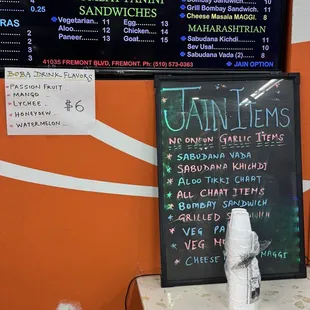 SANDWICHES
Vegetarian.... 11
Egg............ 12
Aloo............ 12
Chicken...... 14
Paneer........ 13
Goat........... 15
Bombay Sandwich... 9
Grill Bombay Sandwich.. 11
Cheese Masala MAGGI.. 8
MAHARASHTRIAN
Sabudana Khichdi
Sev Usal............ 10
Sabudana Vada (2)
JAIN OPTION
41035 FREMONT BLVD, FREMONT. Ph: (510) 573-0363
BOBA DRINK FLAVORS
- PASSION FRUIT
- MANGO
- LYCHEE
- HONEYDEW
- WATERMELON
$6
JAIN ITEMS
NO ONION GARLIC ITEMS
* SABUDANA VADA
* SABUDANA KHICHDI
* ALOO TIKKI CHAAT
* ALL CHAAT ITEMS
* BOMBAY SANDWICH
* GRILLED
* VEG
* VEG
* CHEESE MAGGI